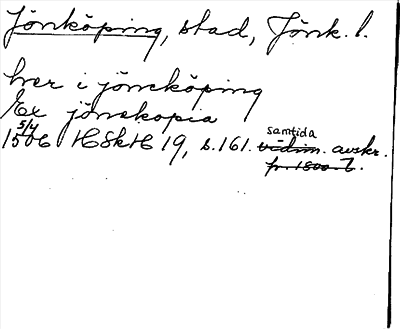 Jönköping, stad, Jönk. l.
hver i jöneköping
Ex jönekopia
5/4
1506 HSkH 19, s. 161. samtida vidim. avskr.
fr. 1800-t.